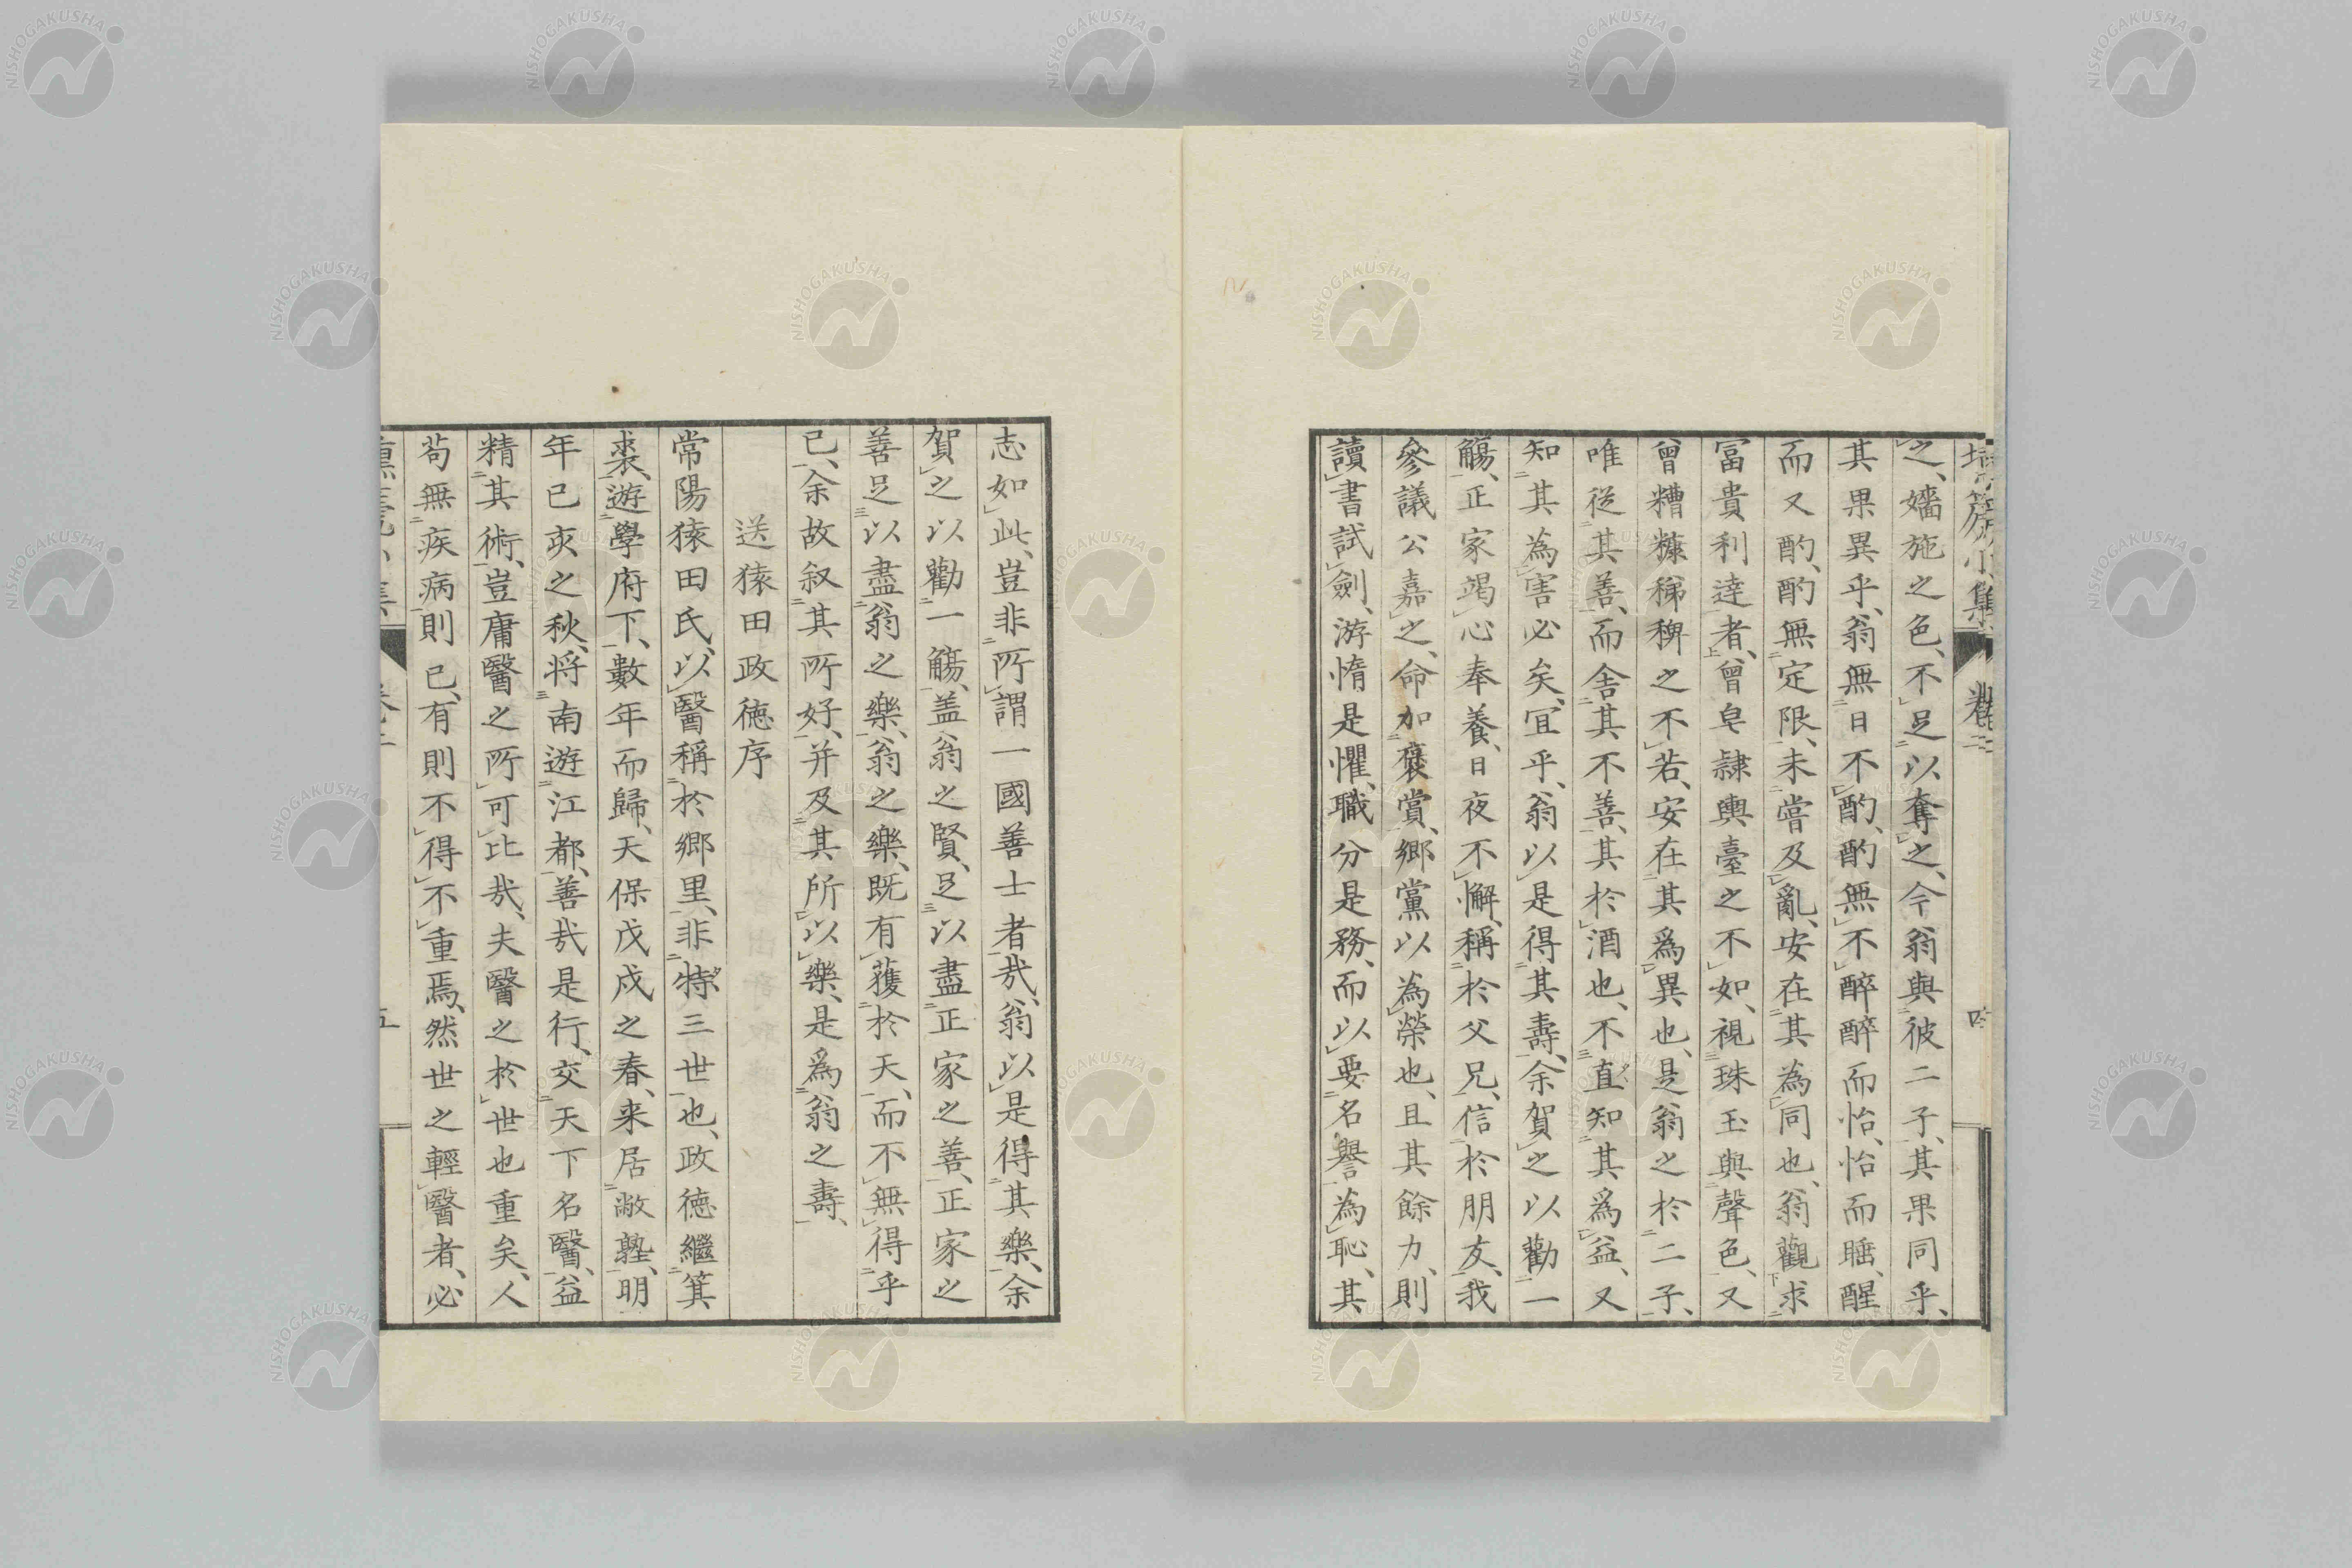 之、嬙施之色、不足以奪之、今翁與彼二子、其果同乎、
其果異乎、翁無日不酌、酌無不醉、醉而怡、怡而睡、醒
而又酌、酌無定限、未嘗及亂、安在其為同也、翁觀求
冨貴利達者、曾皁隷輿臺之不如、視珠玉與聲色、又
曾糟糠稊稗之不若、安在其爲異也、是翁之於二子、
唯從其善、而舍其不善、其於酒也、不直知其爲益、又
知其為害必矣、冝乎、翁以是得其壽、余賀之以勸一
觴、正家竭心奉養、日夜不懈、稱於父兄、信於朋友、我
參議公嘉之、命加褒賞、鄉黨以為榮也、且其餘力、則
讀書試劍、游惰是懼、職分是務、而以要名譽為恥、其
志如此、豈非所謂一國善士者㢤、翁以是得其樂、余
賀之以勸一觴、盖翁之賢、足以盡正家之善、正家之
善足以盡翁之樂、翁之樂、既有獲於天、而不無得乎
已、余故叙其所好、并及其所以樂、是爲翁之壽、
送猿田政徳序
常陽猿田氏、以醫稱於鄉里、非特三世也、政徳繼箕
裘、遊學府下、數年而歸、天保戊戍之春、来居敝塾、明
年已亥之秋、将南遊江都、善㢤是行、交天下名醫、益
精其術、豈庸醫之所可比㢤、夫醫之於世也重矣、人
苟無疾病則已、有則不得不重焉、然世之輕醫者、必
小集
卷二
NISHOGAKUSHA